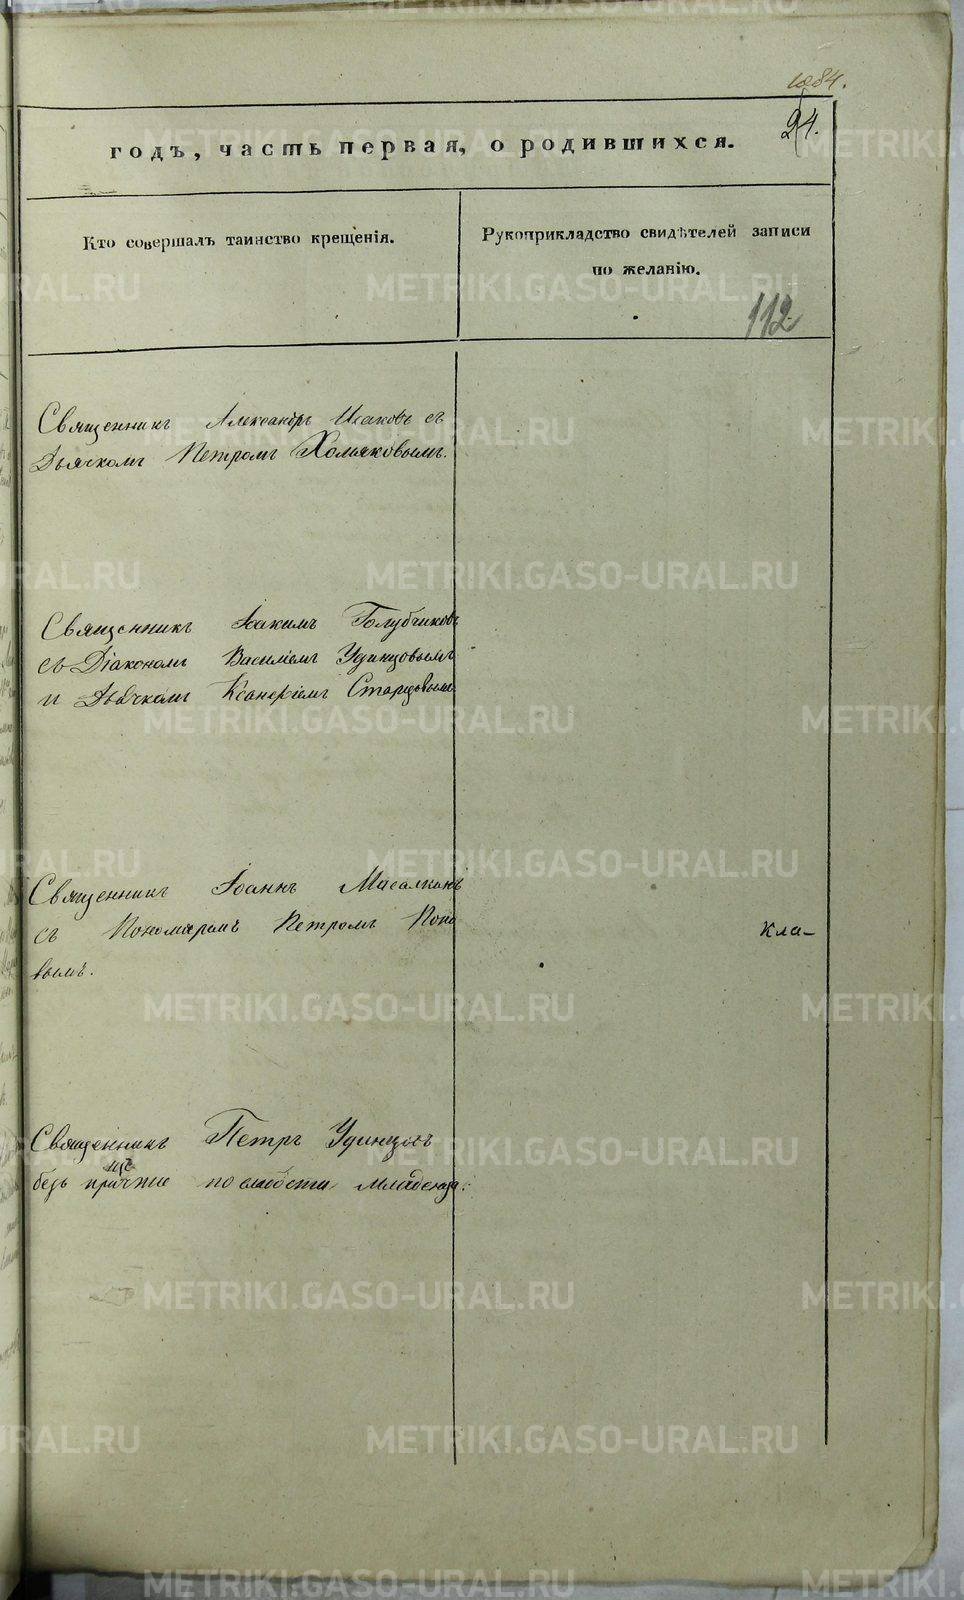 1884.
24.
годъ, часть первая, о родившихся.
Кто совершалъ таинство крещенія.
Рукоприкладство свидѣтелей записи
по желанію.
112
Священникъ Александръ Исаковъ съ
Дьячкомъ Петромъ Хомяковымъ.
Священникъ Іоакимъ Голубчиковъ
съ Діакономъ Василіемъ Удинцовымъ
и Дьячкомъ Старцовымъ
Священникъ Іоаннъ Масалкинъ
съ Пономаремъ Петромъ Попо
вымъ.
Кла-
Священникъ Петръ Удинцовъ
безъ по слабости младенца.
METRIKI.GASO-URAL.RU